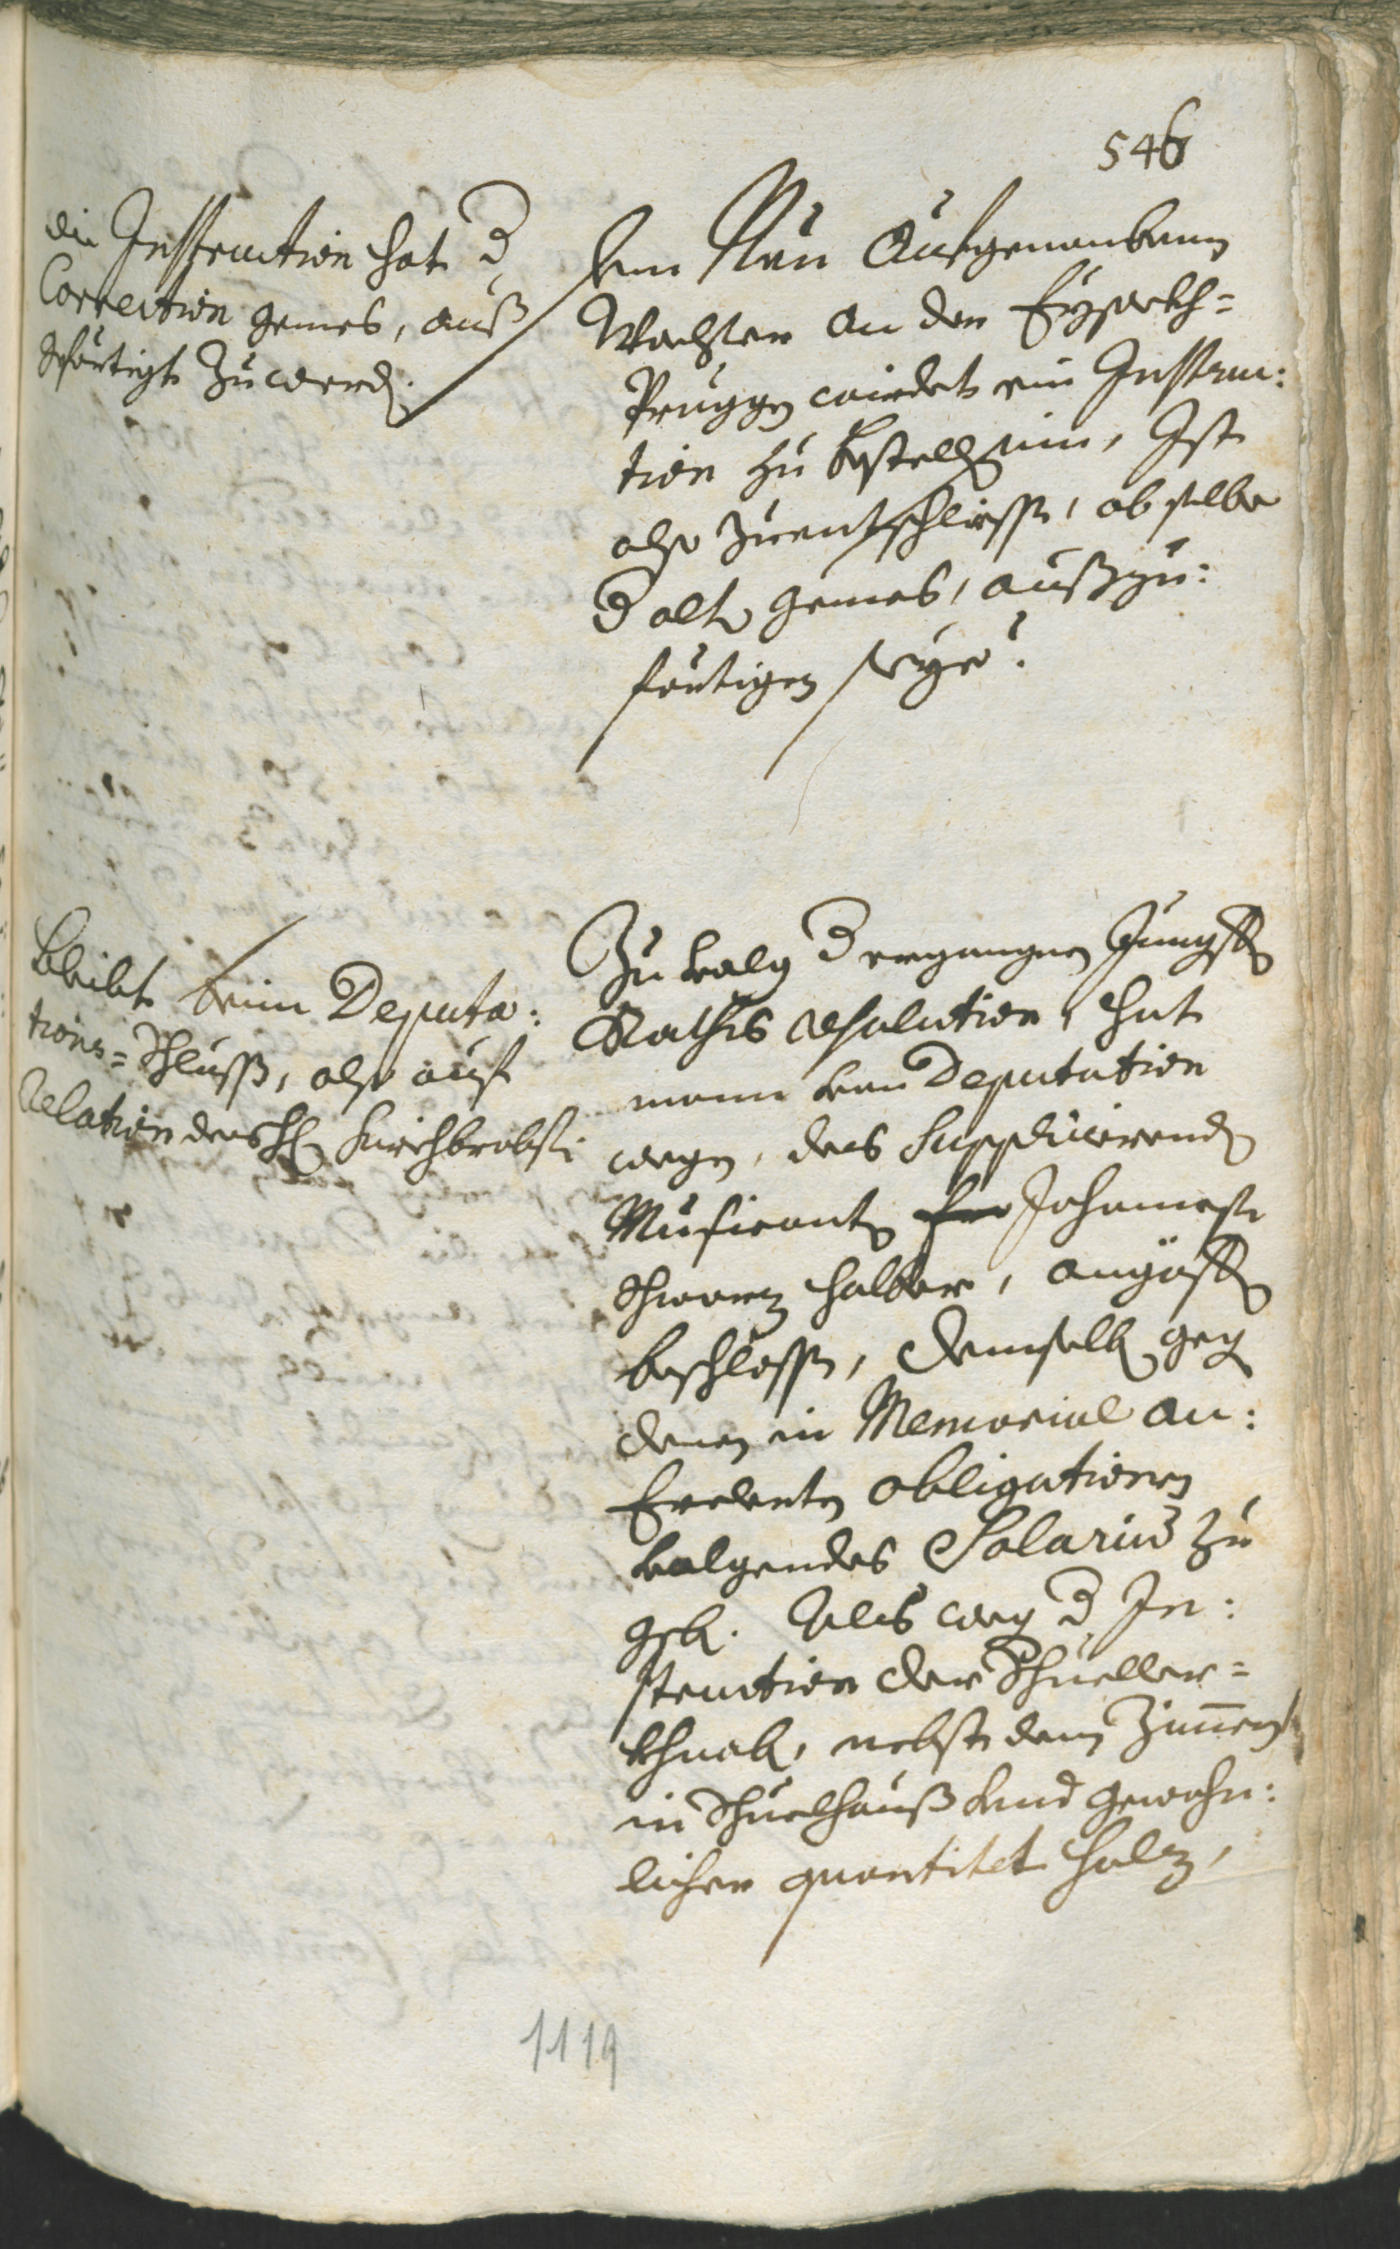 546
die Instruction hat d
Correction gemes, auß
gförtigt Zuwerdn.
Dem Neu Aufgenombnen
Wachter An der Eysackh=
Pruggn wierdet ein Instruc:
tion zu bestelln sein, Ist
also Zuentschliessn, ob selbe
d altn gemes, außzu:
förtigen seye?
bleibt beim Deputa:
tions=Schluß, also auf
Relation des Hn Kirchbrobst
Zu volg d ergangnen Jungstn
Raths resolution, hat
mann von Deputation
wegn, des Supplicierendn
Musicantn Johannesn
Schwarz halber, anheüt
beschlossn, demselbn gegn
denen in Memorial an:
Erelerten obligationen
volgendes Salarium zu
gebn. Als wegn d In:
struction der Schueller=
khnabn, nebst dem Zimmer
in Schuelhauß vnd gewohn:
licher quantitet Holz,
1119